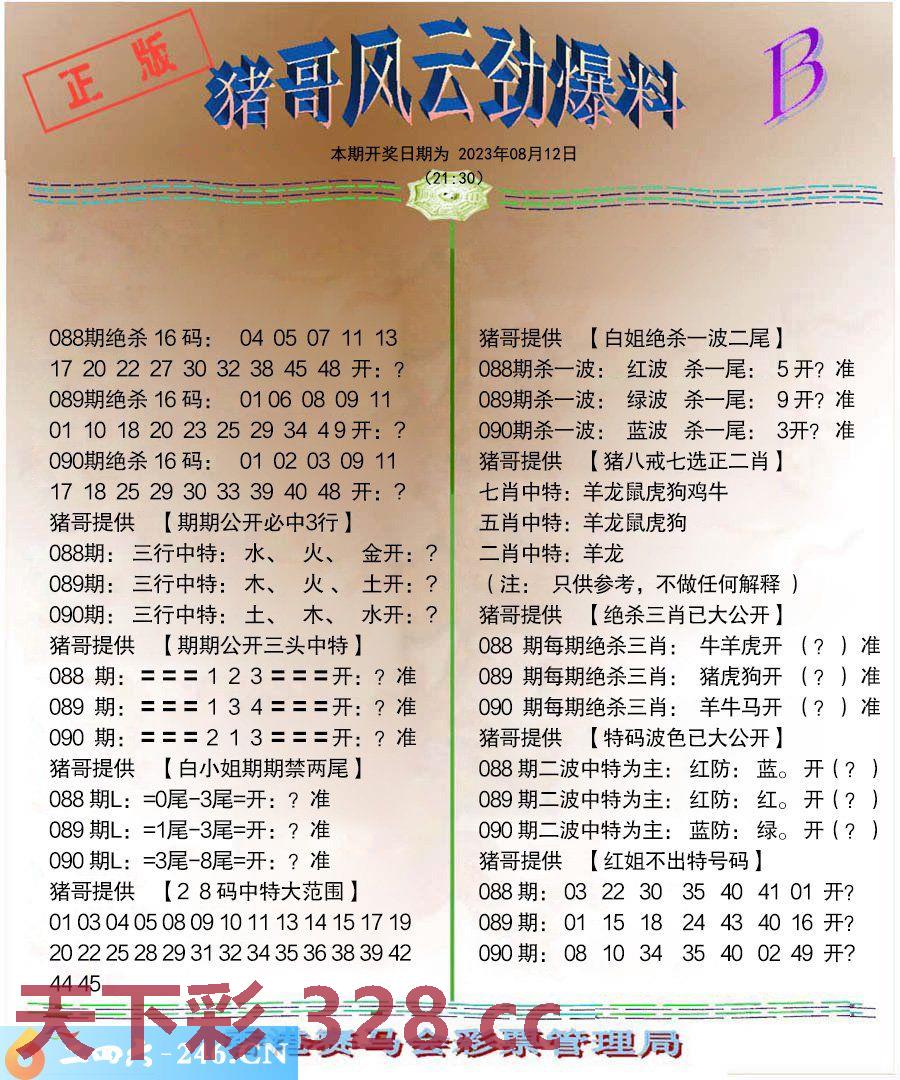 正版
猪哥风云劲爆料
B
本期开奖日期为 2023年08月12日
（21:30）
088期绝杀 16 码： 04 05 07 11 13
17 20 22 27 30 32 38 45 48 开：?
089期绝杀 16 码： 01 06 08 09 11
01 10 18 20 23 25 29 34 4 9 开：?
090期绝杀 16 码： 01 02 03 09 11
17 18 25 29 30 33 39 40 48 开：?
猪哥提供 【期期公开必中3行】
088期： 三行中特： 水、 火、 金开：?
089期： 三行中特： 木、 火、 土开：?
090期： 三行中特： 土、 木、 水开：?
猪哥提供 【期期公开三头中特】
088 期：＝＝＝１２３＝＝＝开：? 准
089 期：＝＝＝１３４＝＝＝开：? 准
090 期：＝＝＝２１３＝＝＝开：? 准
猪哥提供 【白小姐期期禁两尾】
088 期L：=0尾-3尾=开：? 准
089 期L：=1尾-3尾=开：? 准
090 期L：=3尾-8尾=开：? 准
猪哥提供 【２８码中特大范围】
01 03 04 05 08 09 10 11 13 14 15 17 19
20 22 25 28 29 31 32 34 35 36 38 39 42
44 45
猪哥提供 【白姐绝杀一波二尾】
088期杀一波： 红波 杀一尾： 5 开? 准
089期杀一波： 绿波 杀一尾： 9 开? 准
090期杀一波： 蓝波 杀一尾： 3开? 准
猪哥提供 【猪八戒七选正二肖】
七肖中特：羊龙鼠虎狗鸡牛
五肖中特：羊龙鼠虎狗
二肖中特：羊龙
（注： 只供参考，不做任何解释 ）
猪哥提供 【绝杀三肖已大公开】
088 期每期绝杀三肖： 牛羊虎开 （? ）准
089 期每期绝杀三肖： 猪虎狗开 （? ）准
090 期每期绝杀三肖： 羊牛马开 （? ）准
猪哥提供 【特码波色已大公开】
088 期二波中特为主：红防：蓝。开（? ）
089 期二波中特为主：红防：红。开（? ）
090 期二波中特为主：蓝防：绿。开（? ）
猪哥提供 【红姐不出特号码】
088 期： 03 22 30 35 40 41 01 开?
089 期： 01 15 18 24 43 40 16 开?
090 期： 08 10 34 35 40 02 49 开?
天下彩 328.cc
-246.CN
赛马会彩票管理局